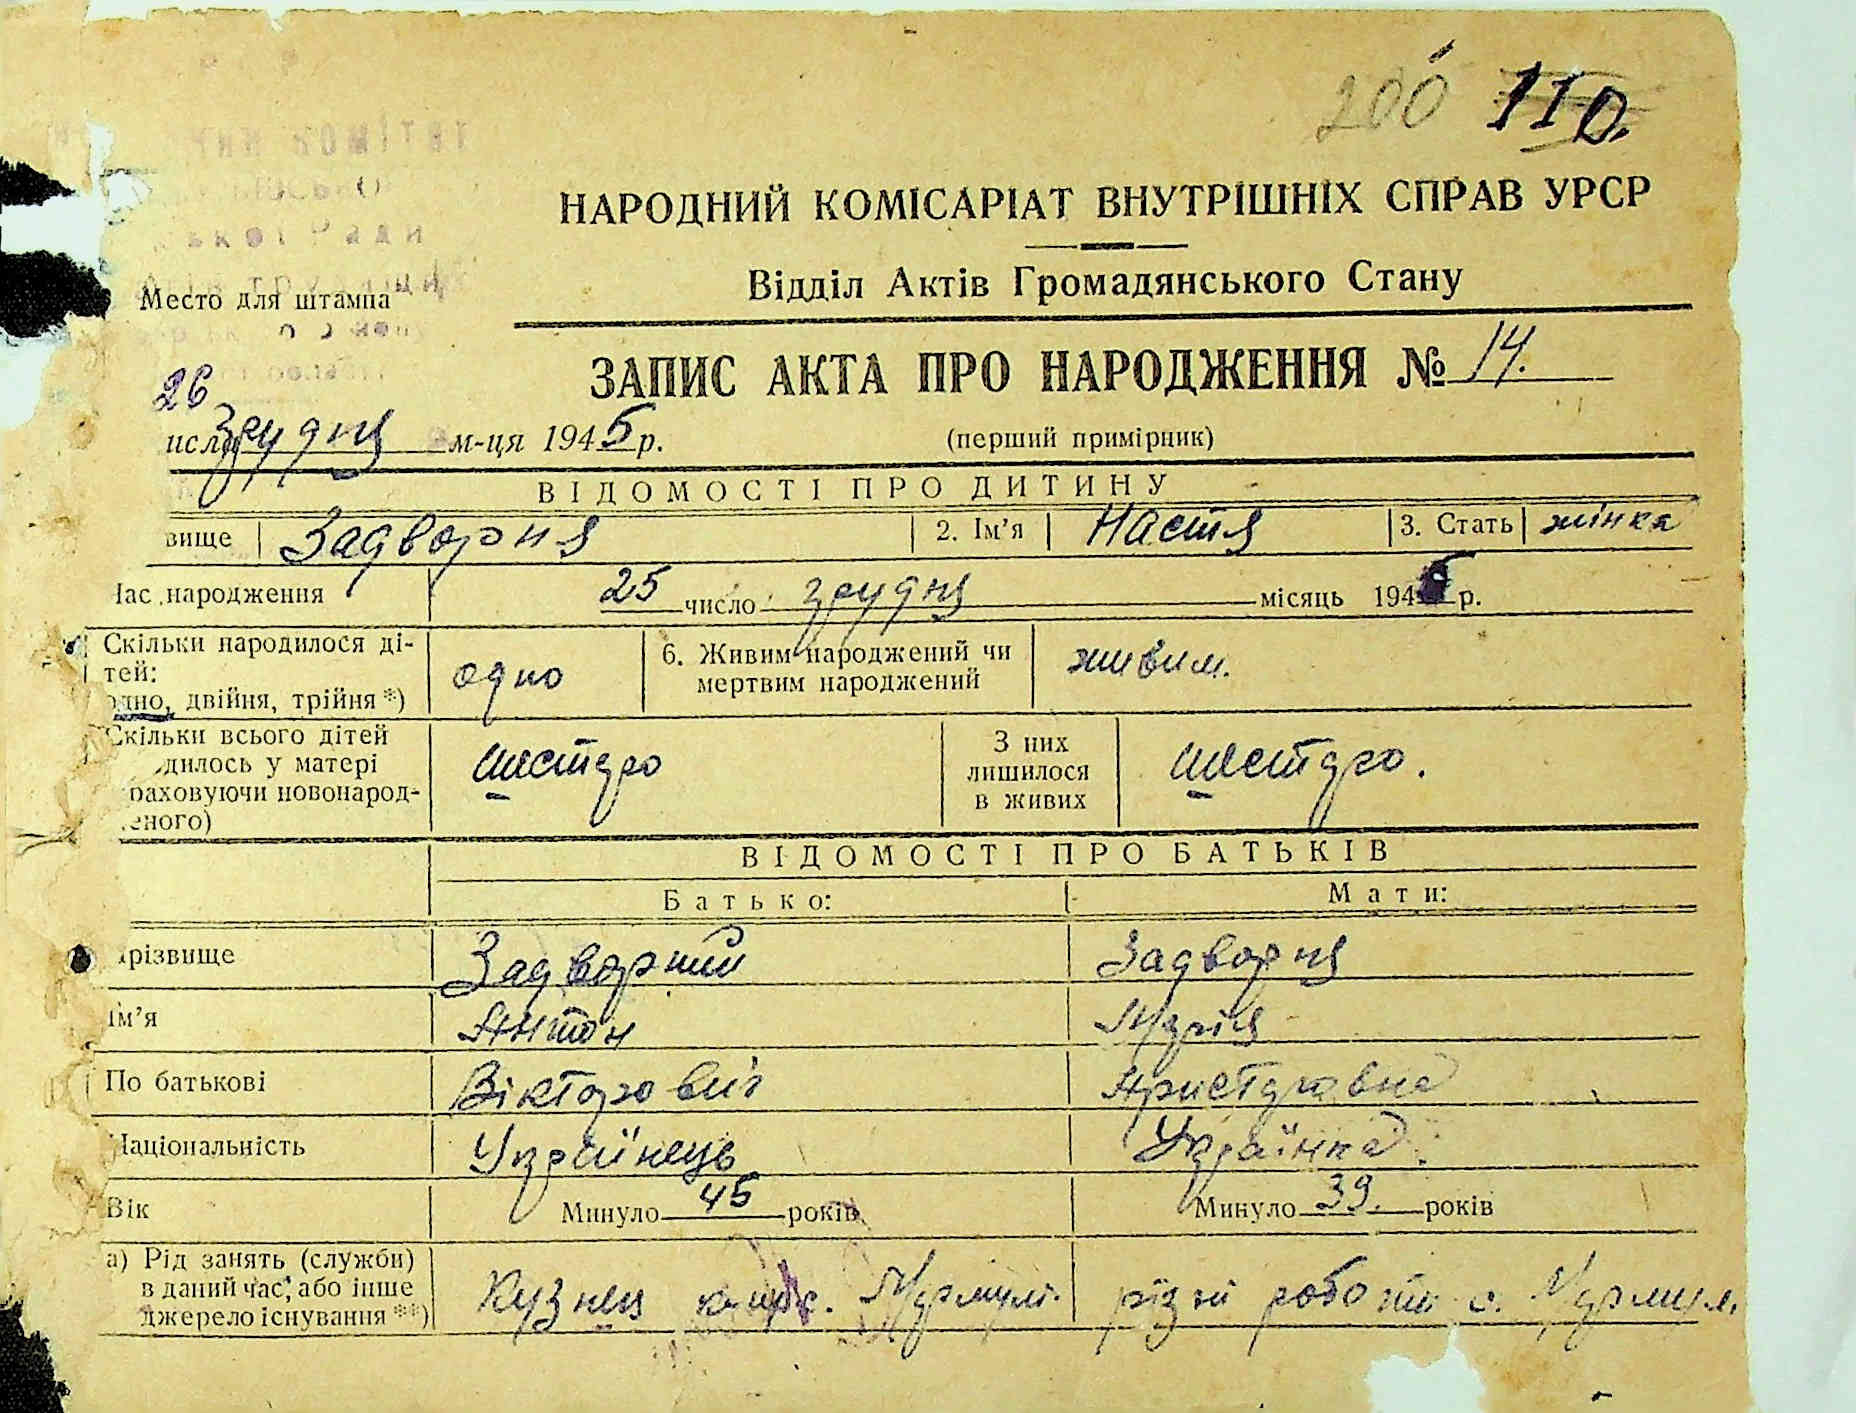 200 110.
НАРОДНИЙ КОМІСАРІАТ ВНУТРІШНІХ СПРАВ УРСР
Відділ Актів Громадянського Стану
Место для штампа
ЗАПИС АКТА ПРО НАРОДЖЕННЯ № 14.
26
исла грудня м-ця 1945 р.
(перший примірник)
ВІДОМОСТІ ПРО ДИТИНУ
вище Задворня 2. Ім'я Настя 3. Стать жінка
Час народження 25 число грудня місяць 1945 р.
Скільки народилося ді-
тей:
одно, двійня, трійня *) одно 6. Живим народжений чи
мертвим народжений живим.
Скільки всього дітей
дилось у матері
раховуючи новонарод-
еного) шестеро З них
лишилося
в живих шестеро.
ВІДОМОСТІ ПРО БАТЬКІВ
Батько: Мати:
різвище Задворний Задворня
Ім'я Антон Марія
По батькові Вікторович
Національність Українець Українка.
Вік Минуло 45 років Минуло 39. років
а) Рід занять (служби)
в даний час, або інше
джерело існування **) Кузнец різні роботи с.